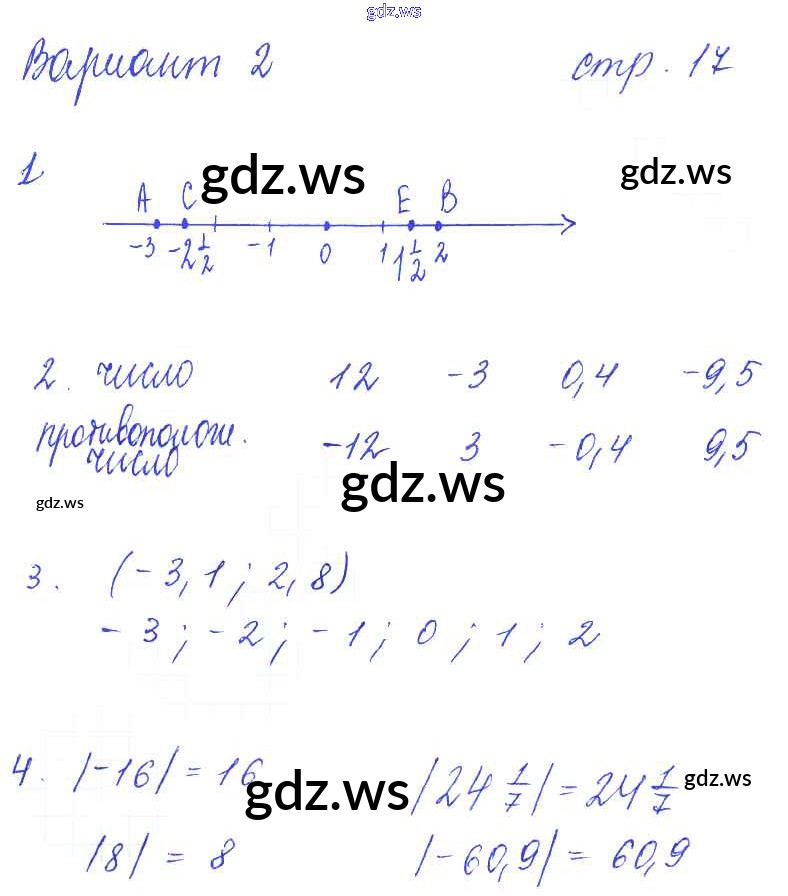 gdz.ws
Вариант 2 стр. 17
1
gdz.ws gdz.ws
A C E B
-3 -2 1/2 -1 0 1 1 1/2 2
2. число 12 -3 0,4 -9,5
противополож. -12 3 -0,4 9,5
число
gdz.ws
gdz.ws
3. (-3,1; 2,8)
-3; -2; -1; 0; 1; 2
4. |-16| = 16 |24 1/7| = 24 1/7
gdz.ws gdz.ws
|8| = 8 |-60,9| = 60,9